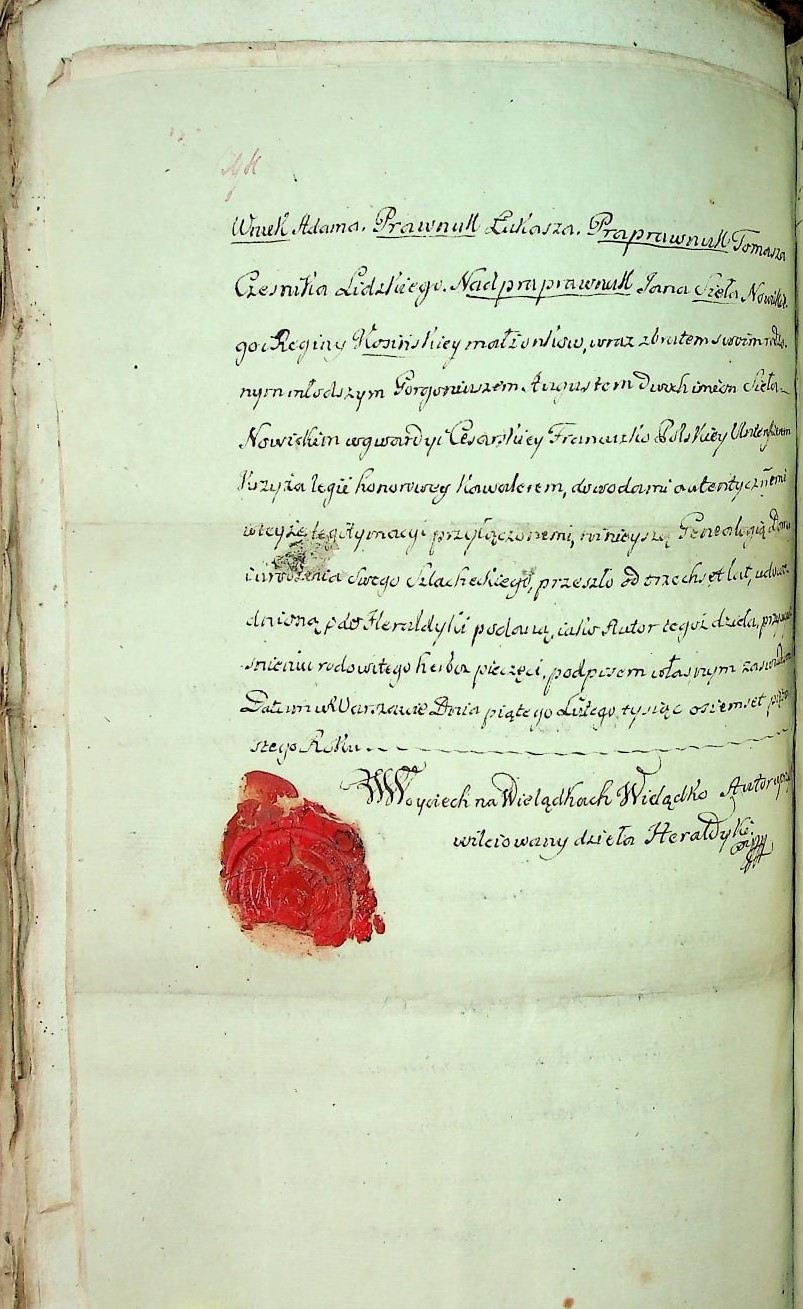 Wnuk Adama. Prawnuk Łukasza. Praprawnuk Tomasza
Czesnika Lidzkiego. Nadpraprawnuk Jana Sieła Nowickie
go i Reginy Kosińskiey małżonków, wraz zbratem swoim rodzo
nym młodszym Gorgoniuszem Augustem dwoch imion Sieła
Nowickim w gwardyi Cesarskiey Francuzko Polskiey
Krzyża legii honorowey Kawalerem, dowodami autentycznemi
w teyże legitymacyi przyłączonemi, ninieyszą Genealogią Domu
i urodzenia Swego Szlacheckiego, przeszło od trzechset lat, udowo
dnioną do Heraldyki podaną, iako Autor tegoż dzieła, przyci
śnieniu rodowitego herbu pieczęci, podpisem własnym
Datum w Warszawie Dnia piątego Lutego, tysiąc osiemset
stego Roku
Woyciech na Wielądkach Wielądko Autor uprzy
wileiowany dzieła Heraldyki